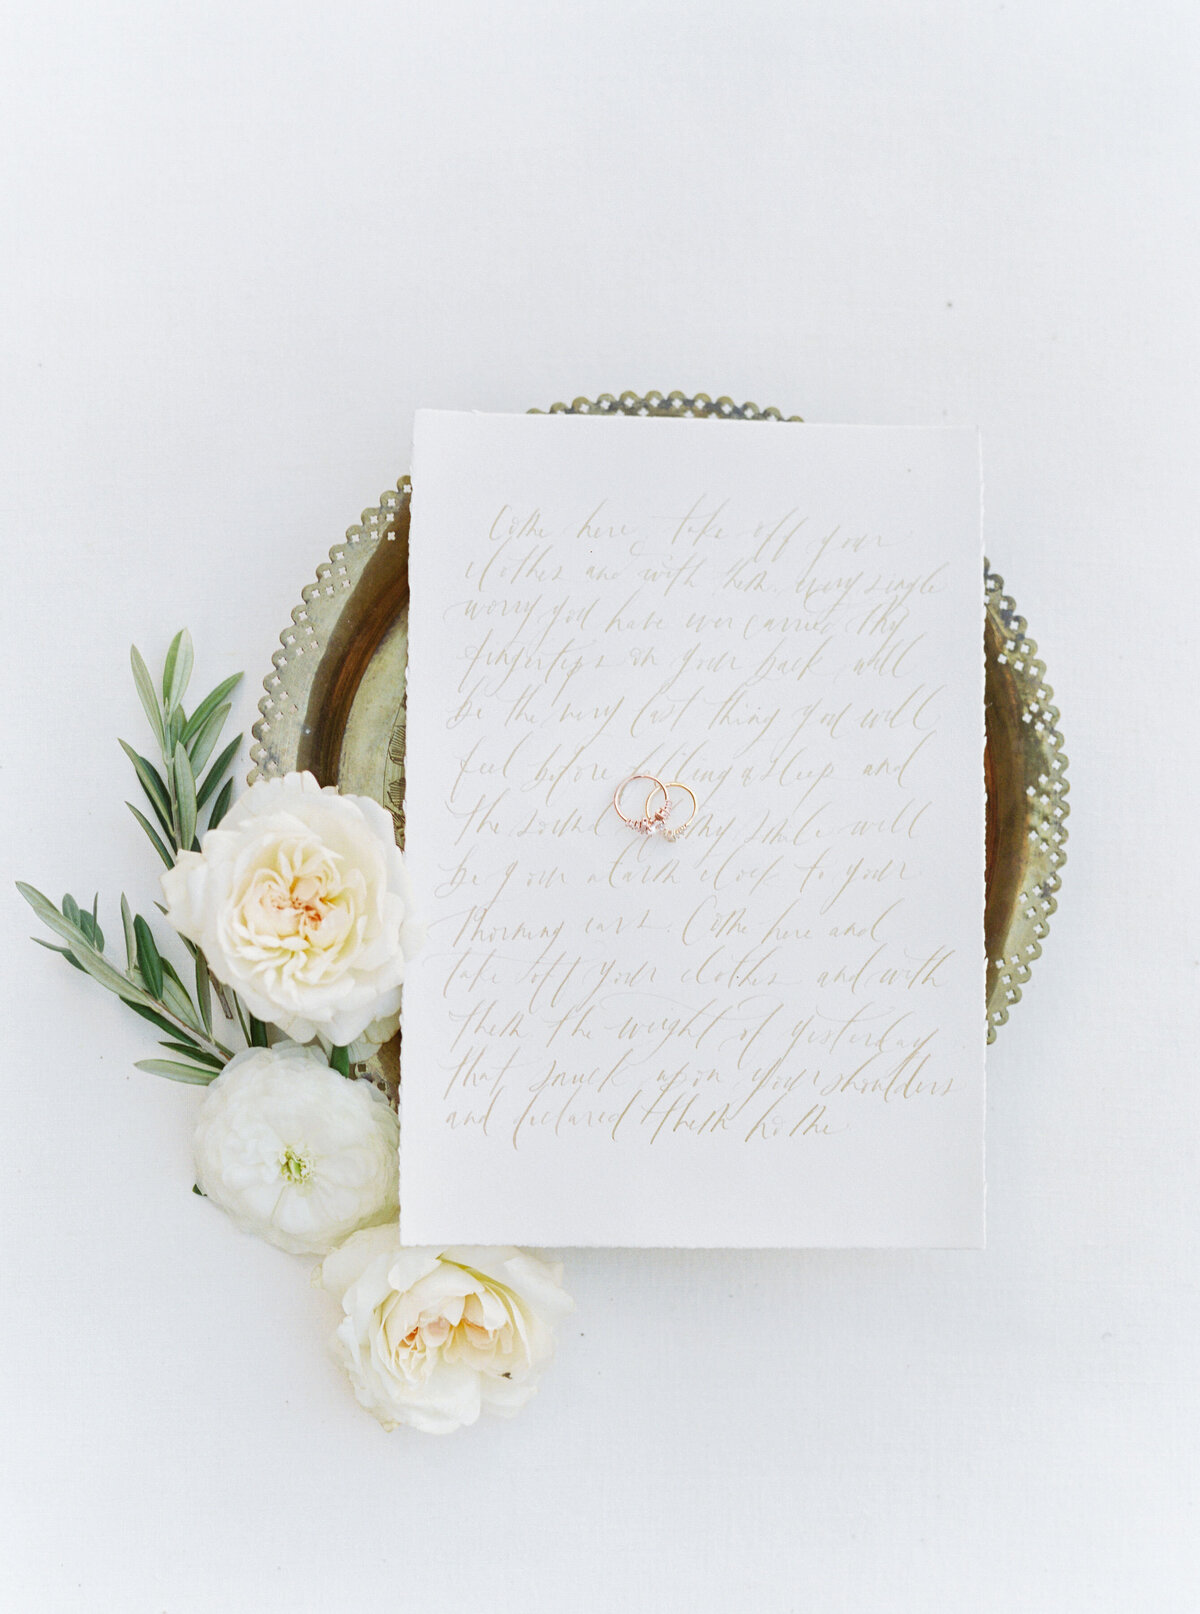 Come here, take off your
clothes and with them, every single
worry you have ever carried. My
fingertips on your back will
be the very last thing you will
feel before falling asleep and
the sound of my smile will
be your alarm clock to your
morning ears. Come here and
take off your clothes and with
them the weight of yesterday
that snuck upon your shoulders
and declared them home